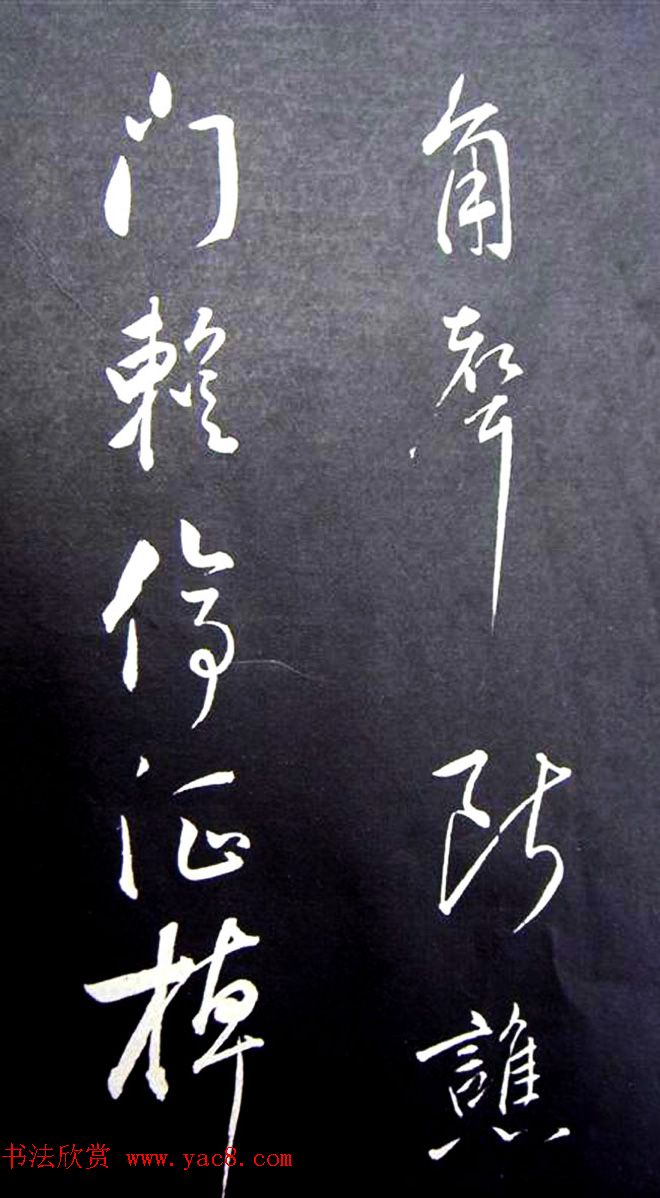 角聲断譙
门暂停征棹
书法欣赏 www.yac8.com